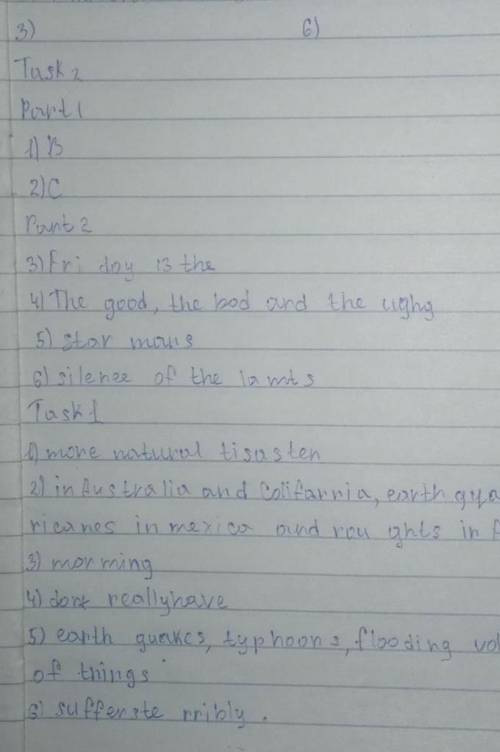 3) 6)
Task 2
Part 1
1) B
2) C
Part 2
3) Fri day 13 the
4) The good, the bad and the ughy
5) star mours
6) silence of the lamts
Task 1
1) more natural tisasten
2) in Australia and Colifarnia, earth qua
ricanes in mexico and rou ghts in A
3) morming
4) dont reallyhave
5) earth guakes, typhoons, flooding vol
of things
6) sufferste rribly.